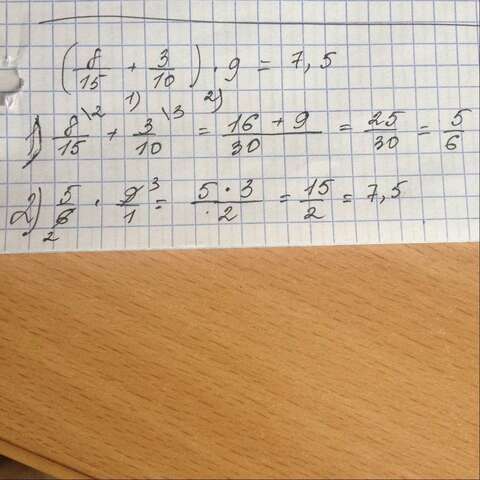 (8/15 + 3/10) · 9 = 7,5
1) 2)
1) 8\2/15 + 3\3/10 = 16 + 9/30 = 25/30 = 5/6
2) 5/6 2 · 9 3/1 = 5 · 3/·2 = 15/2 = 7,5